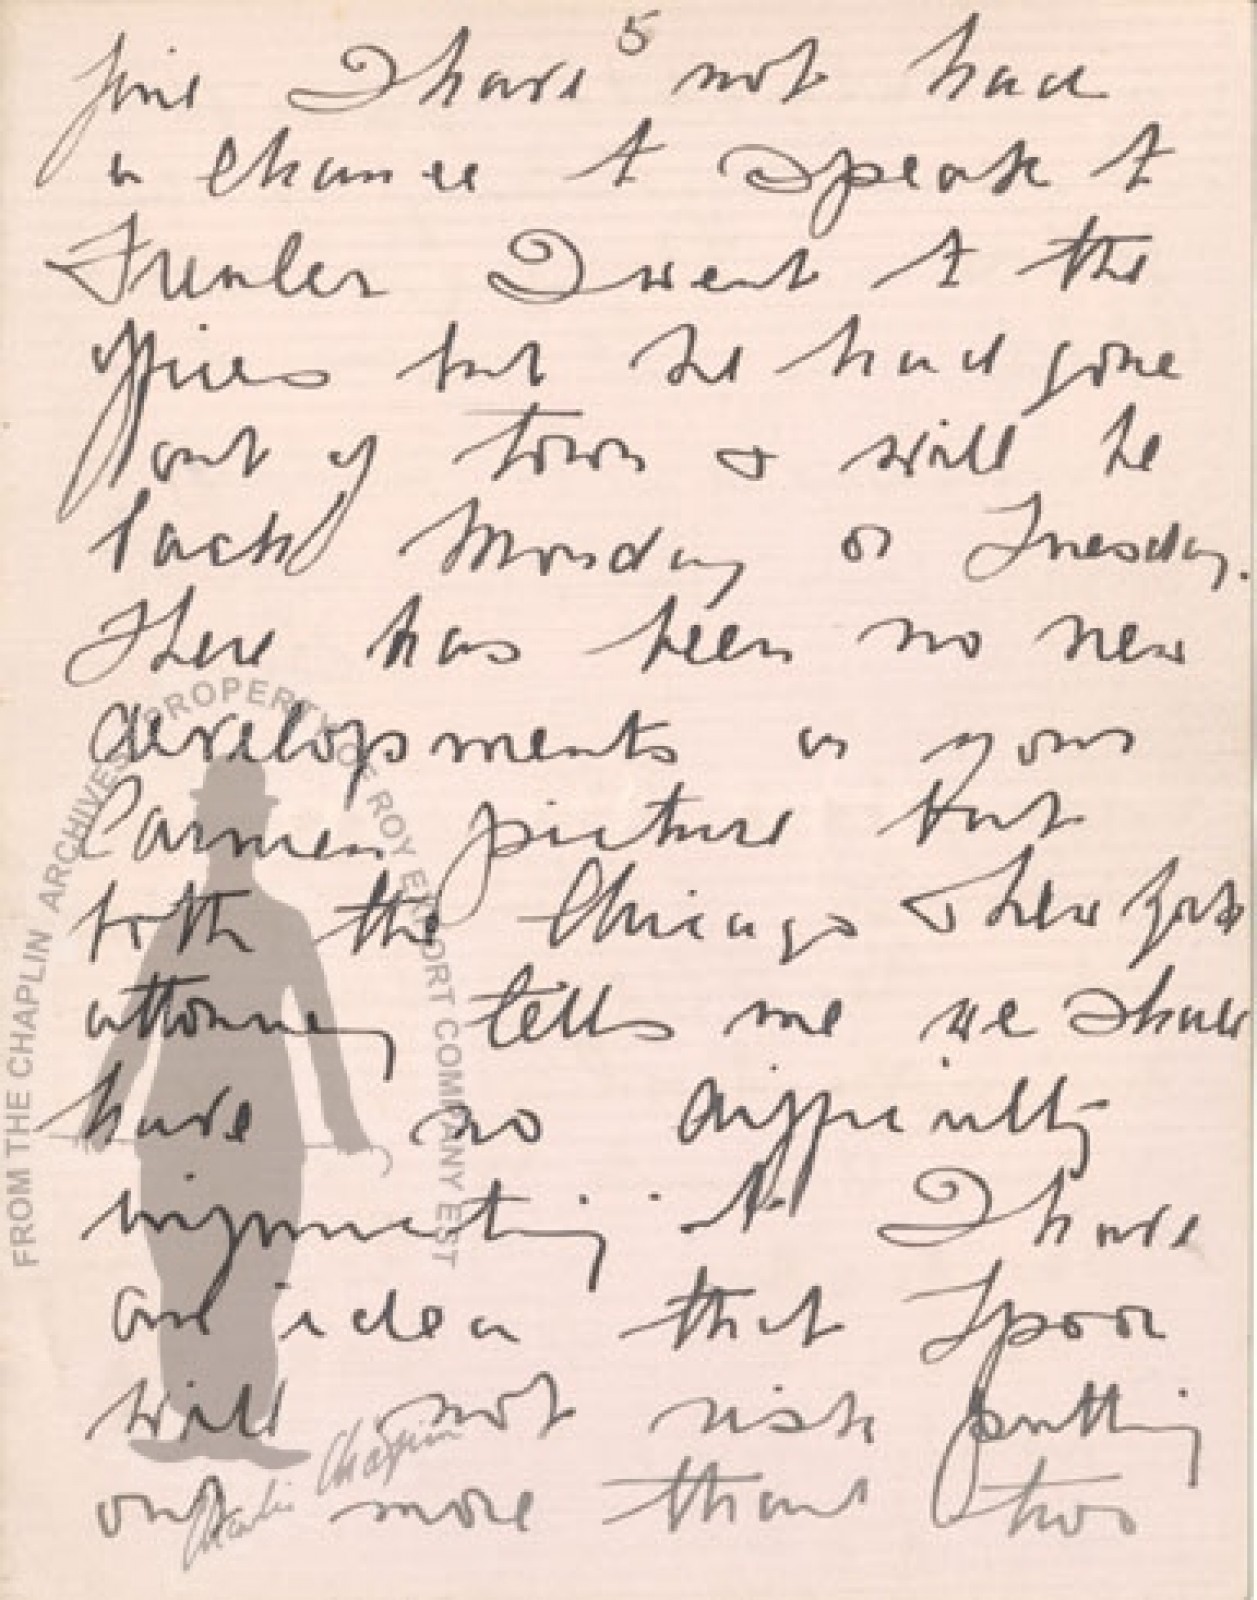 5
fine I have not had
a chance to speak to
Freuler I went to the
offices but he had gone
out of town & will be
back Monday or Tuesday.
There has been no new
developments in your
Carmen picture But
both the Chicago & New York
attorney tells me we shall
have no difficulty
injuncting it I have
an idea that Spoor
will not risk putting
out more than two
FROM THE CHAPLIN ARCHIVES PROPERTY OF ROY EXPORT COMPANY EST
Charlie Chaplin